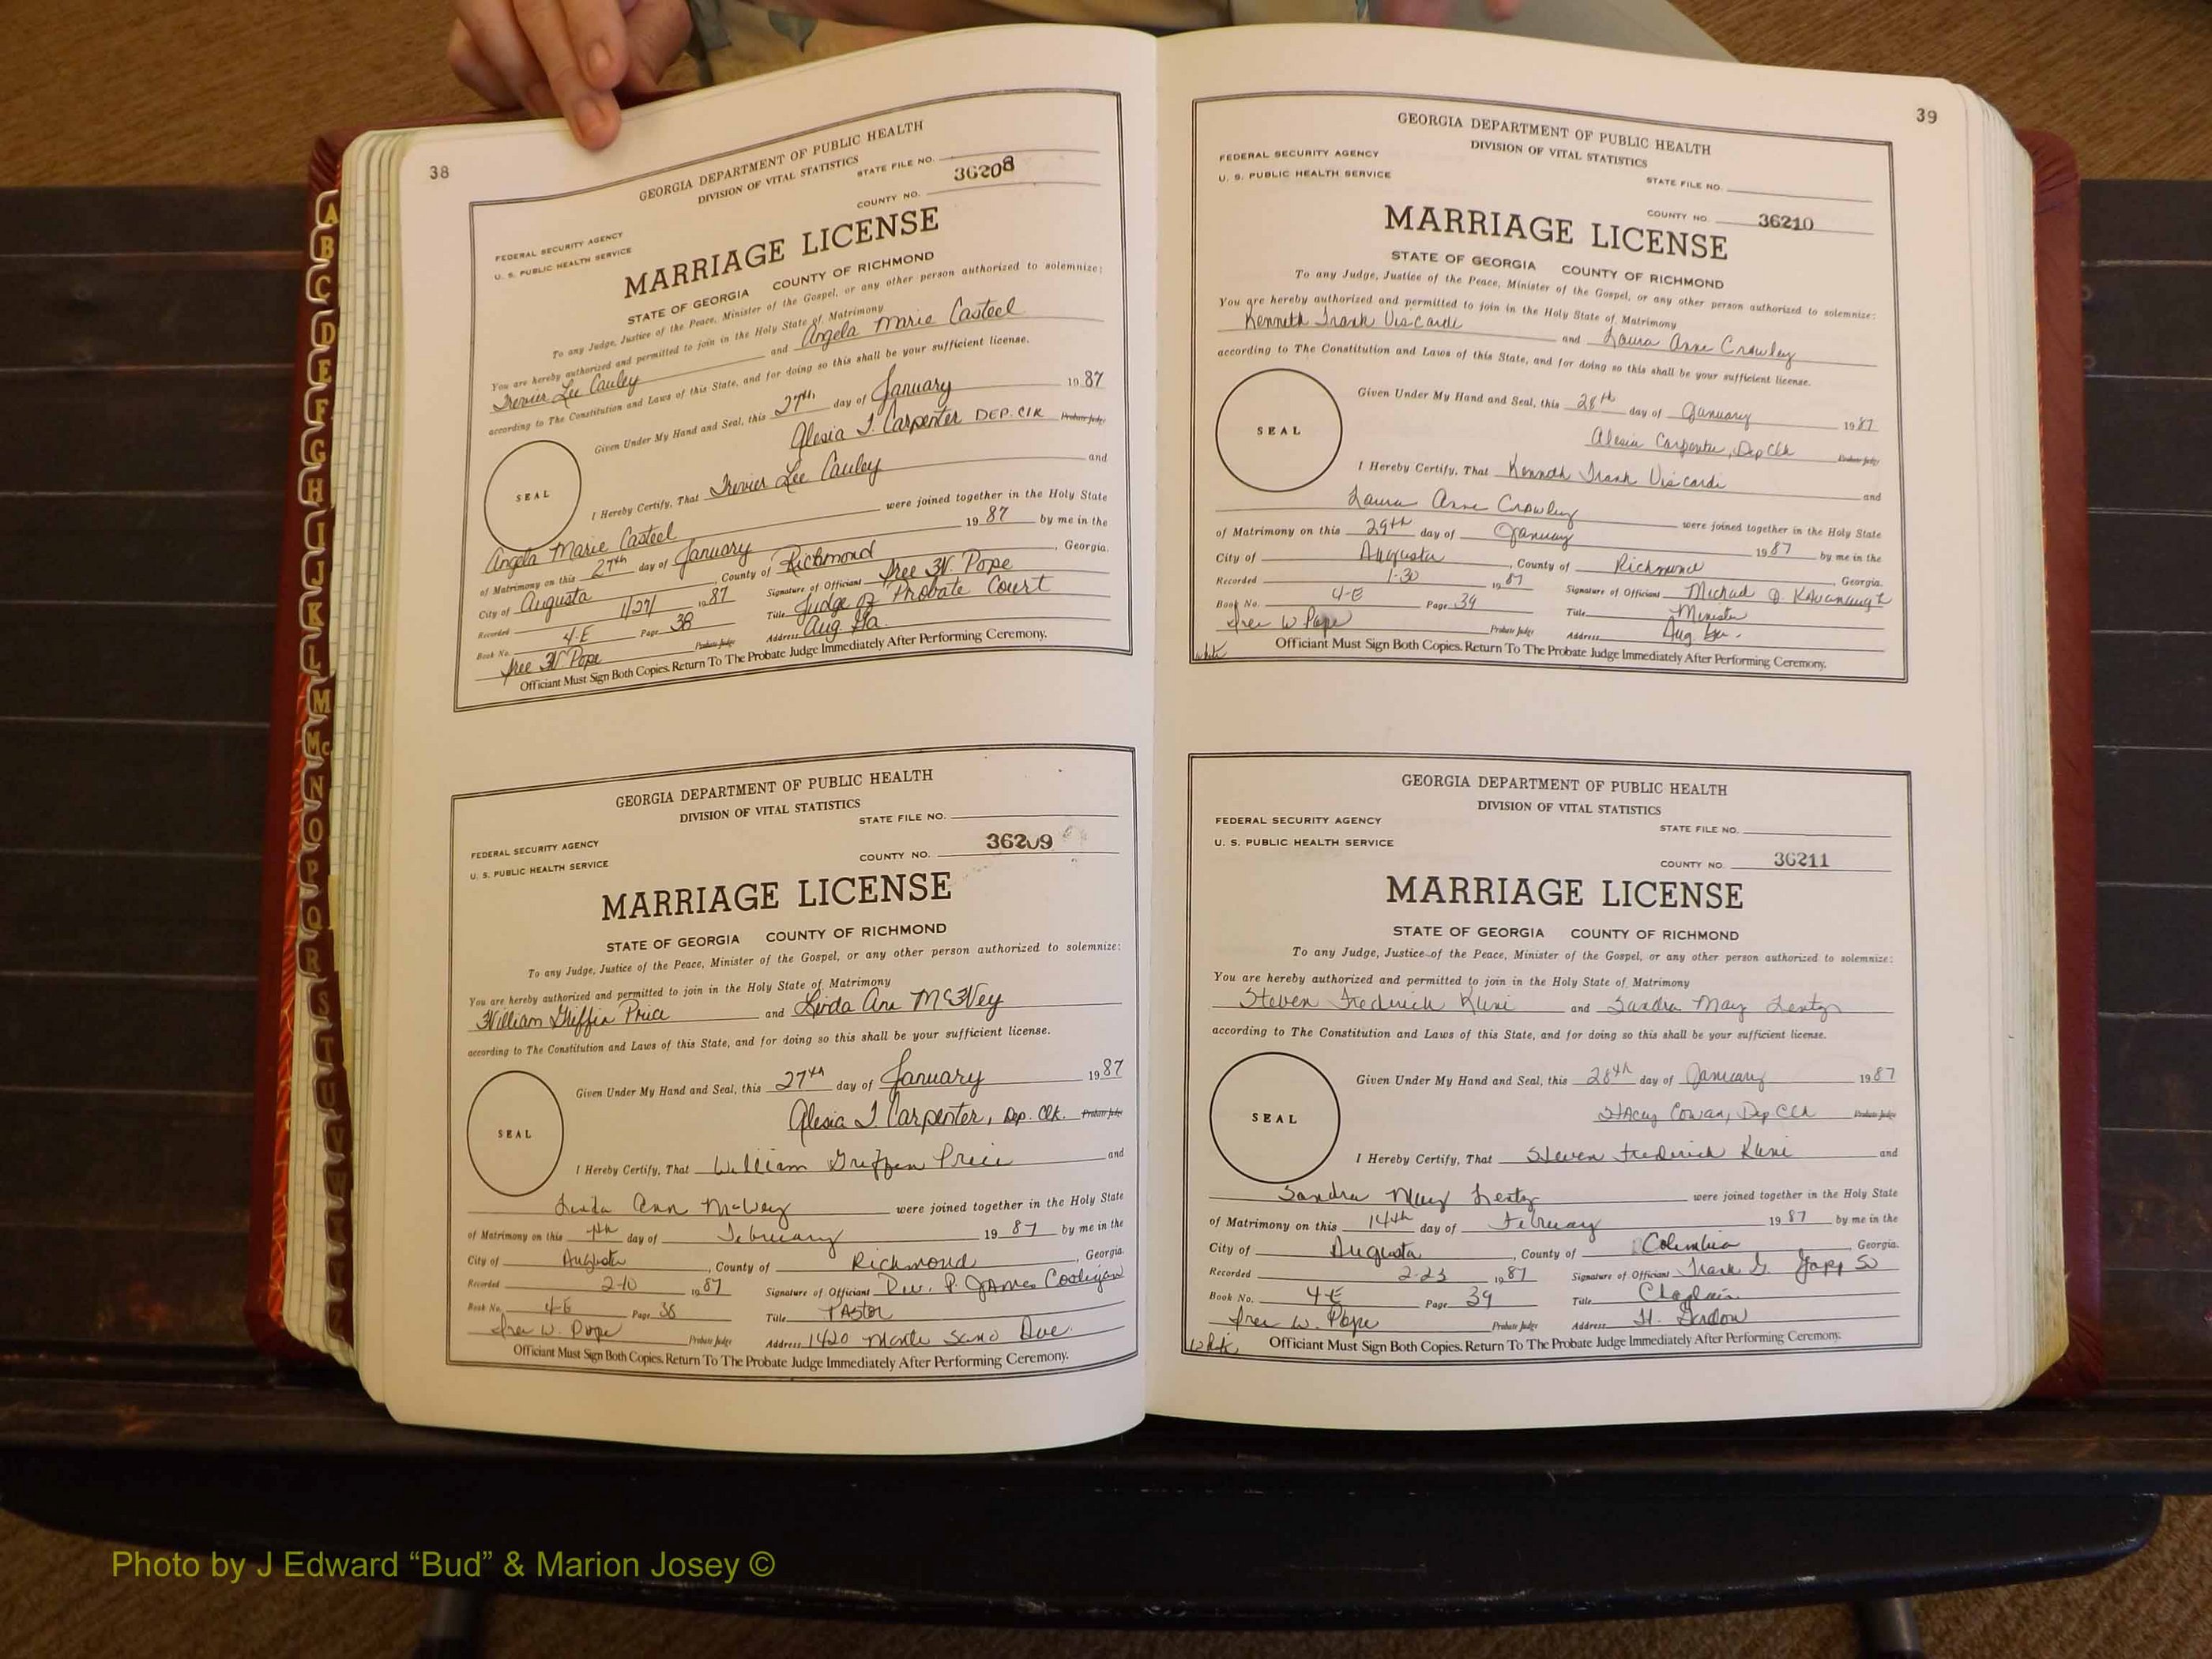 38
GEORGIA DEPARTMENT OF PUBLIC HEALTH
DIVISION OF VITAL STATISTICS
STATE FILE NO.
FEDERAL SECURITY AGENCY
U. S. PUBLIC HEALTH SERVICE
COUNTY NO. 36208
MARRIAGE LICENSE
STATE OF GEORGIA COUNTY OF RICHMOND
To any Judge, Justice of the Peace, Minister of the Gospel, or any other person authorized to solemnize:
You are hereby authorized and permitted to join in the Holy State of Matrimony
Lee Cauley and Angela Marie Casteel
according to The Constitution and Laws of this State, and for doing so this shall be your sufficient license.
Given Under My Hand and Seal, this 27th day of January 1987
Alesia J. Carpenter DEP. CLK Probate Judge
SEAL
I Hereby Certify, That Lee Cauley and
Angela Marie Casteel were joined together in the Holy State
of Matrimony on this 27th day of January 1987 by me in the
City of Augusta, County of Richmond, Georgia.
Recorded 1/27/ 1987 Signature of Officiant W. Pope
Book No. 4-E Page 38 Title Judge of Probate Court
W. Pope Probate Judge Address Aug. Ga.
Officiant Must Sign Both Copies. Return To The Probate Judge Immediately After Performing Ceremony.
GEORGIA DEPARTMENT OF PUBLIC HEALTH
DIVISION OF VITAL STATISTICS
STATE FILE NO.
FEDERAL SECURITY AGENCY
U. S. PUBLIC HEALTH SERVICE
COUNTY NO. 36209
MARRIAGE LICENSE
STATE OF GEORGIA COUNTY OF RICHMOND
To any Judge, Justice of the Peace, Minister of the Gospel, or any other person authorized to solemnize:
You are hereby authorized and permitted to join in the Holy State of Matrimony
William Griffin Price and Linda Ann McWey
according to The Constitution and Laws of this State, and for doing so this shall be your sufficient license.
Given Under My Hand and Seal, this 27th day of January 1987
Alesia J. Carpenter, Dep. Clk. Probate Judge
SEAL
I Hereby Certify, That William Griffin Price and
Linda Ann McWey were joined together in the Holy State
of Matrimony on this 7th day of February 1987 by me in the
City of Augusta, County of Richmond, Georgia.
Recorded 2-10 1987 Signature of Officiant Rev. P. James Costigan
Book No. 4-E Page 38 Title Pastor
W. Pope Probate Judge Address 1420 Monte Sano Ave.
Officiant Must Sign Both Copies. Return To The Probate Judge Immediately After Performing Ceremony.
39
GEORGIA DEPARTMENT OF PUBLIC HEALTH
DIVISION OF VITAL STATISTICS
FEDERAL SECURITY AGENCY
U. S. PUBLIC HEALTH SERVICE
STATE FILE NO.
COUNTY NO 36210
MARRIAGE LICENSE
STATE OF GEORGIA COUNTY OF RICHMOND
To any Judge, Justice of the Peace, Minister of the Gospel, or any other person authorized to solemnize:
You are hereby authorized and permitted to join in the Holy State of Matrimony
Kenneth Frank Viscardi and Laura Anne Crowley
according to The Constitution and Laws of this State, and for doing so this shall be your sufficient license.
Given Under My Hand and Seal, this 28th day of January 1987
Alesia Carpenter, Dep Clk Probate Judge
SEAL
I Hereby Certify, That Kenneth Frank Viscardi and
Laura Anne Crowley were joined together in the Holy State
of Matrimony on this 29th day of January 1987 by me in the
City of Augusta, County of Richmond, Georgia.
Recorded 1-30 1987 Signature of Officiant Michael Kavanaugh
Book No. 4-E Page 39 Title Minister
W Pope Probate Judge Address Aug. Ga.
white Officiant Must Sign Both Copies. Return To The Probate Judge Immediately After Performing Ceremony.
GEORGIA DEPARTMENT OF PUBLIC HEALTH
DIVISION OF VITAL STATISTICS
FEDERAL SECURITY AGENCY
STATE FILE NO.
U. S. PUBLIC HEALTH SERVICE
COUNTY NO. 36211
MARRIAGE LICENSE
STATE OF GEORGIA COUNTY OF RICHMOND
To any Judge, Justice of the Peace, Minister of the Gospel, or any other person authorized to solemnize:
You are hereby authorized and permitted to join in the Holy State of Matrimony
Steven Frederick Kuni and Sandra May Lentz
according to The Constitution and Laws of this State, and for doing so this shall be your sufficient license.
Given Under My Hand and Seal, this 28th day of January 1987
Stacey Cowan, Dep Clk Probate Judge
SEAL
I Hereby Certify, That Steven Frederick Kuni and
Sandra May Lentz were joined together in the Holy State
of Matrimony on this 14th day of February 1987 by me in the
City of Augusta, County of Columbia, Georgia.
Recorded 2-23 1987 Signature of Officiant Frank G.
Book No. 4-E Page 39 Title Chaplain
W. Pope Probate Judge Address Ft. Gordon
White Officiant Must Sign Both Copies. Return To The Probate Judge Immediately After Performing Ceremony.
A
B
C
D
E
F
G
H
I
J
K
L
M
Mc
N
O
P
Q
R
S
T
U
V
W
Photo by J Edward “Bud” & Marion Josey ©